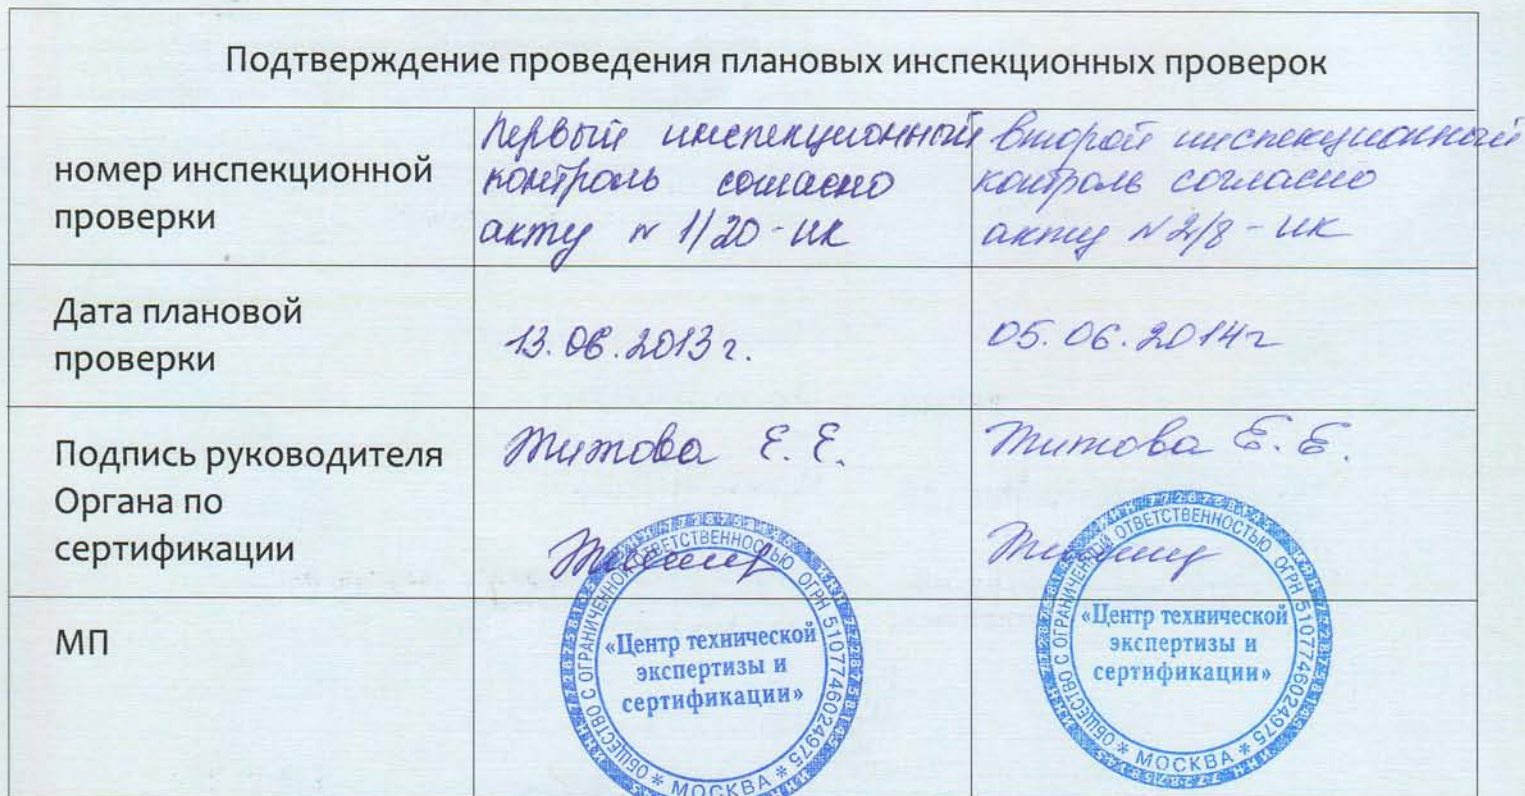 Подтверждение проведения плановых инспекционных проверок
номер инспекционной
проверки
Первый инспекционный
контроль согласно
акту № 1/20-ИК
второй инспекционный
контроль согласно
акту № 2/8-ИК
Дата плановой
проверки
13.06.2013 г.
05.06.2014г
Подпись руководителя
Органа по
сертификации
Титова Е. Е.
Титова Е. Е.
МП
ОБЩЕСТВО С ОГРАНИЧЕННОЙ ОТВЕТСТВЕННОСТЬЮ ОГРН 5107746024975
«Центр технической
экспертизы и
сертификации»
* МОСКВА *
ОБЩЕСТВО С ОГРАНИЧЕННОЙ ОТВЕТСТВЕННОСТЬЮ ОГРН 5107746024975
«Центр технической
экспертизы и
сертификации»
* МОСКВА *